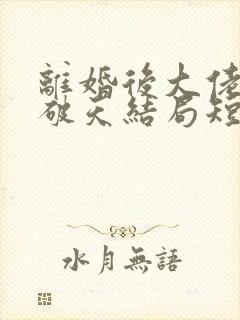 離婚後大佬
破天結局短
水月無語